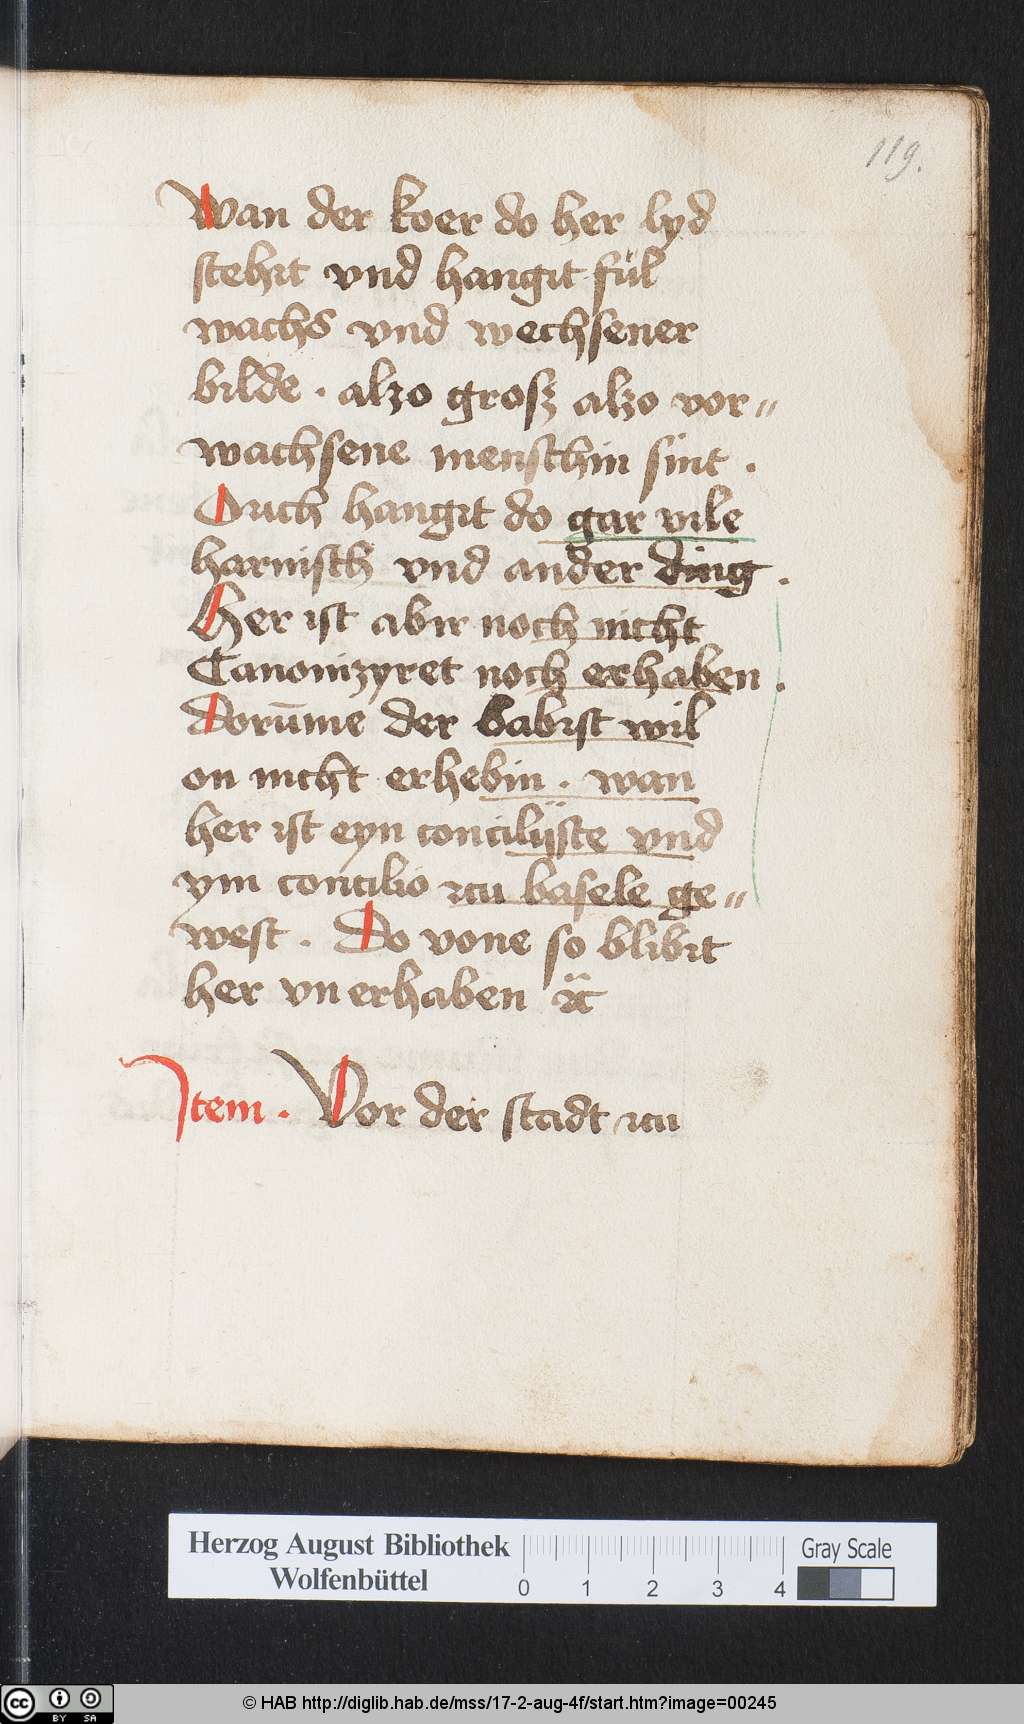 119.
Wan der koer do her lyd
stehit vnd hangit fúl
wachs vnd wechsener
bilde . alzo grosz alzo vor〃
wachsene menschin sint .
Ouch hangit do gar vile
harnisch vnd ander ding .
Her ist abir noch nicht
Canonizyret noch erhaben .
dorūme der babist wil
on nicht erhebin . wan
her ist eyn concilijste vnd
ym concilio zcu basele ge〃
west . Do vone so blibit
her vnerhaben ꝛc̈
Item . Vor der stadt zcu
Herzog August Bibliothek
Wolfenbüttel
0 1 2 3 4
Gray Scale
cc BY SA
© HAB http://diglib.hab.de/mss/17-2-aug-4f/start.htm?image=00245